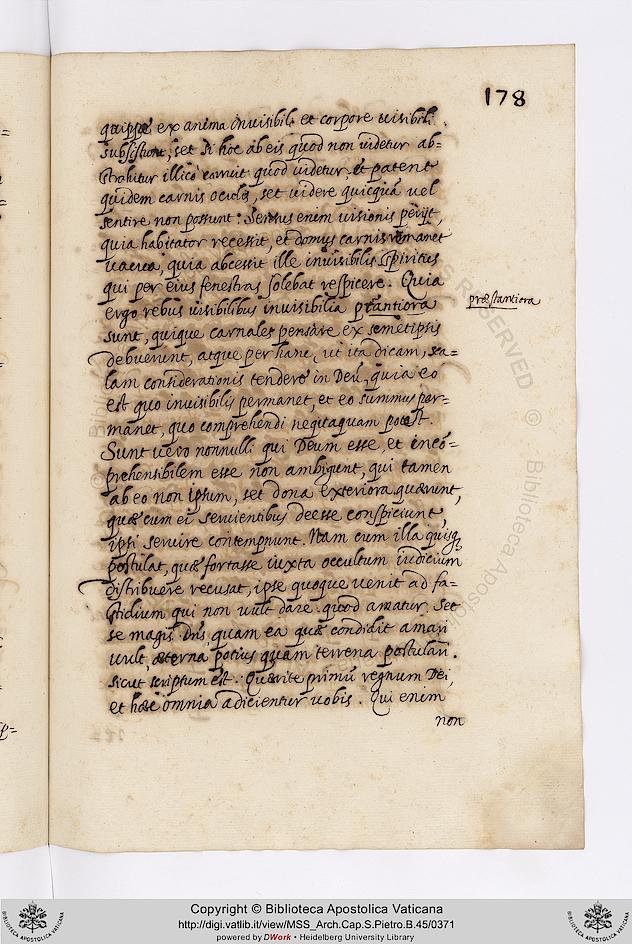 178
quippe ex anima invisibili et corpore visibili
subsistunt, set si hoc ab eis quod non videtur ab=
strahitur illico corruit quod videtur, et patent
quidem carnis oculi, set videre quicquā vel
sentire non possunt: Sensus enim visionis perijt,
quia habitator recessit, et domus carnis remanet
vacua, quia abcessit ille invisibilis spiritus
qui per eius fenestras solebat respicere. Quia
ergo rebus visibilibus invisibilia prantiora
præstantiora
sunt, quique carnales pensare ex semetipsis
debuerunt, atque per hanc, ut ita dicam, sca=
lam considerationis tendere in Deū, quia eo
est quo invisibilis permanet, et eo summus per=
manet, quo comprehendi nequaquam potest.
Sunt vero nonnulli qui Deum esse, et incō=
prehensibilem esse non ambigunt, qui tamen
ab eo non ipsum, set dona exteriora quærunt,
quæ cum ei servientibus deesse conspiciunt,
ipsi servire contempnunt. Nam cum illa quisq
postulat, quæ fortasse iuxta occultum iudicium
distribuere recusat, ipse quoque venit ad fa=
stidium qui non vult dare quod amatur. Set
se magis Dns, quam ea quæ condidit amari
vult, æterna potius quam terrena postulari.
sicut scriptum est. Quærite primū regnum Dei,
et hæc omnia adicientur vobis. Qui enim
non
Copyright © Biblioteca Apostolica Vaticana
http://digi.vatlib.it/view/MSS_Arch.Cap.S.Pietro.B.45/0371
powered by DWork • Heidelberg University Library